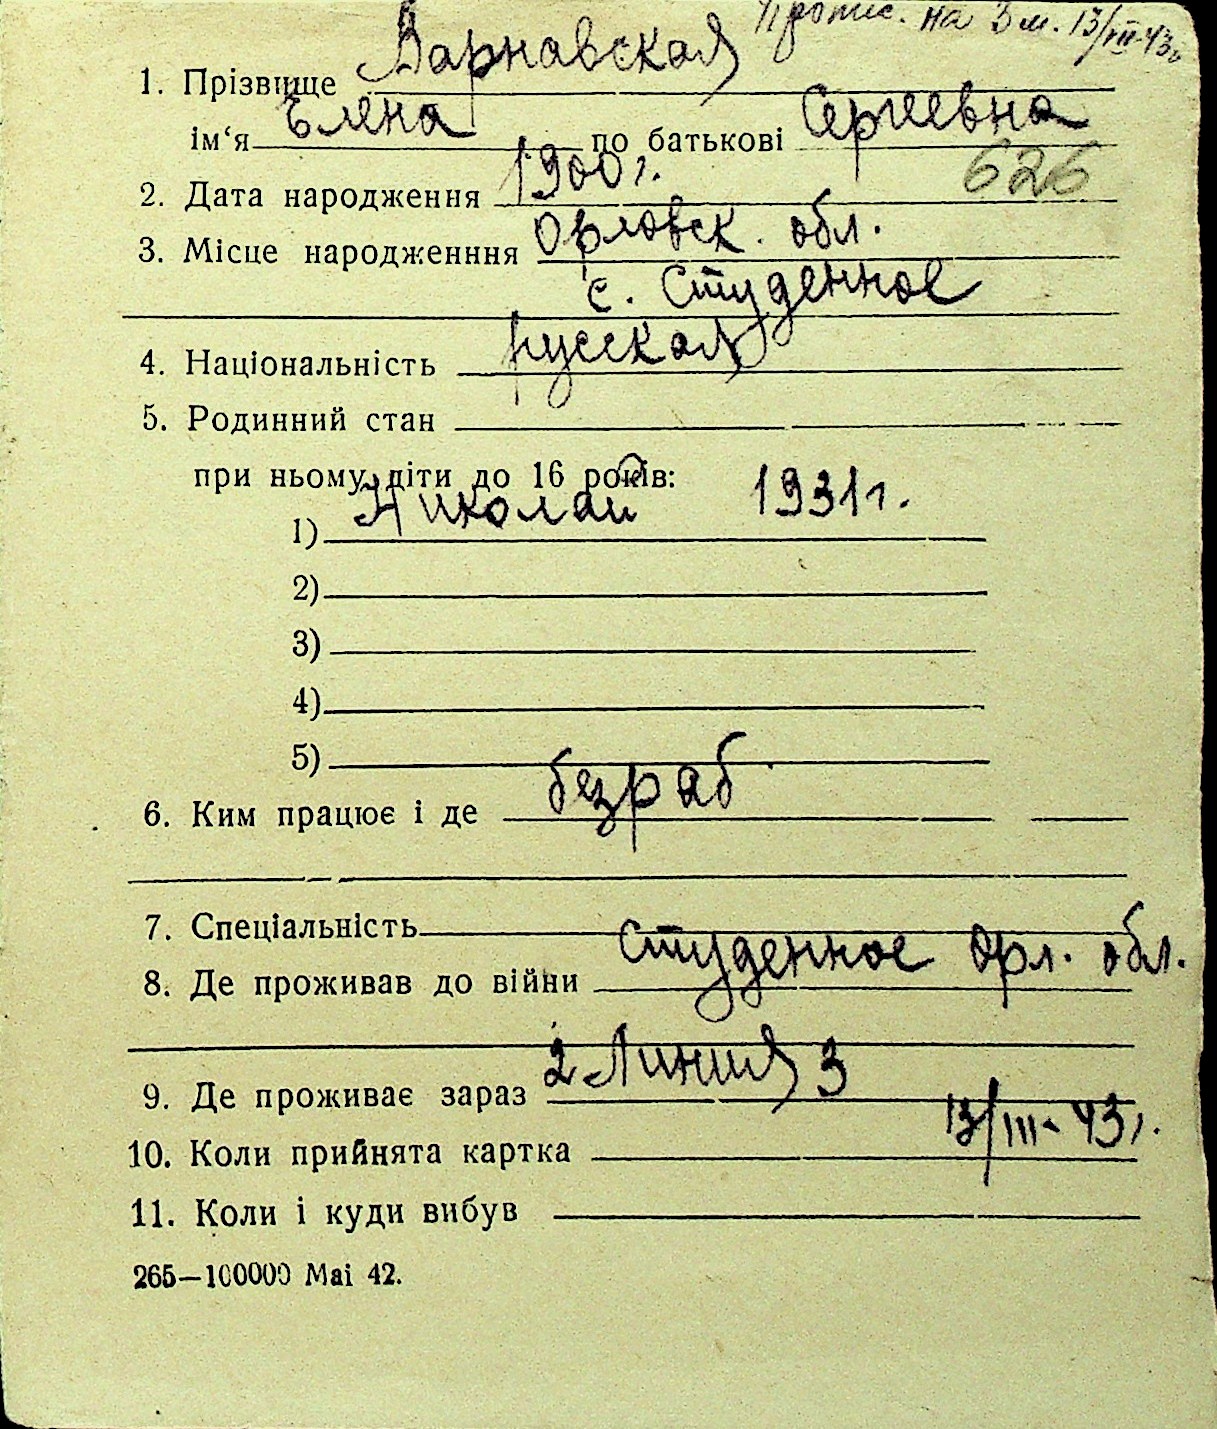 Пропис. на 3 м. 13/III-43г.
1. Прізвище Варнавская
ім‘я Елена по батькові Сергеевна
626
2. Дата народження 1900 г.
3. Місце народженння Орловск. обл.
с. Студенное
4. Національність русская
5. Родинний стан
при ньому діти до 16 років:
1) Николай 1931 г.
2)
3)
4)
5)
6. Ким працює і де безраб
7. Спеціальність
8. Де проживав до війни Студенное Орл. обл.
9. Де проживає зараз 2 Линия 3
10. Коли прийнята картка 13/III-43 г.
11. Коли і куди вибув
265—100000 Mai 42.